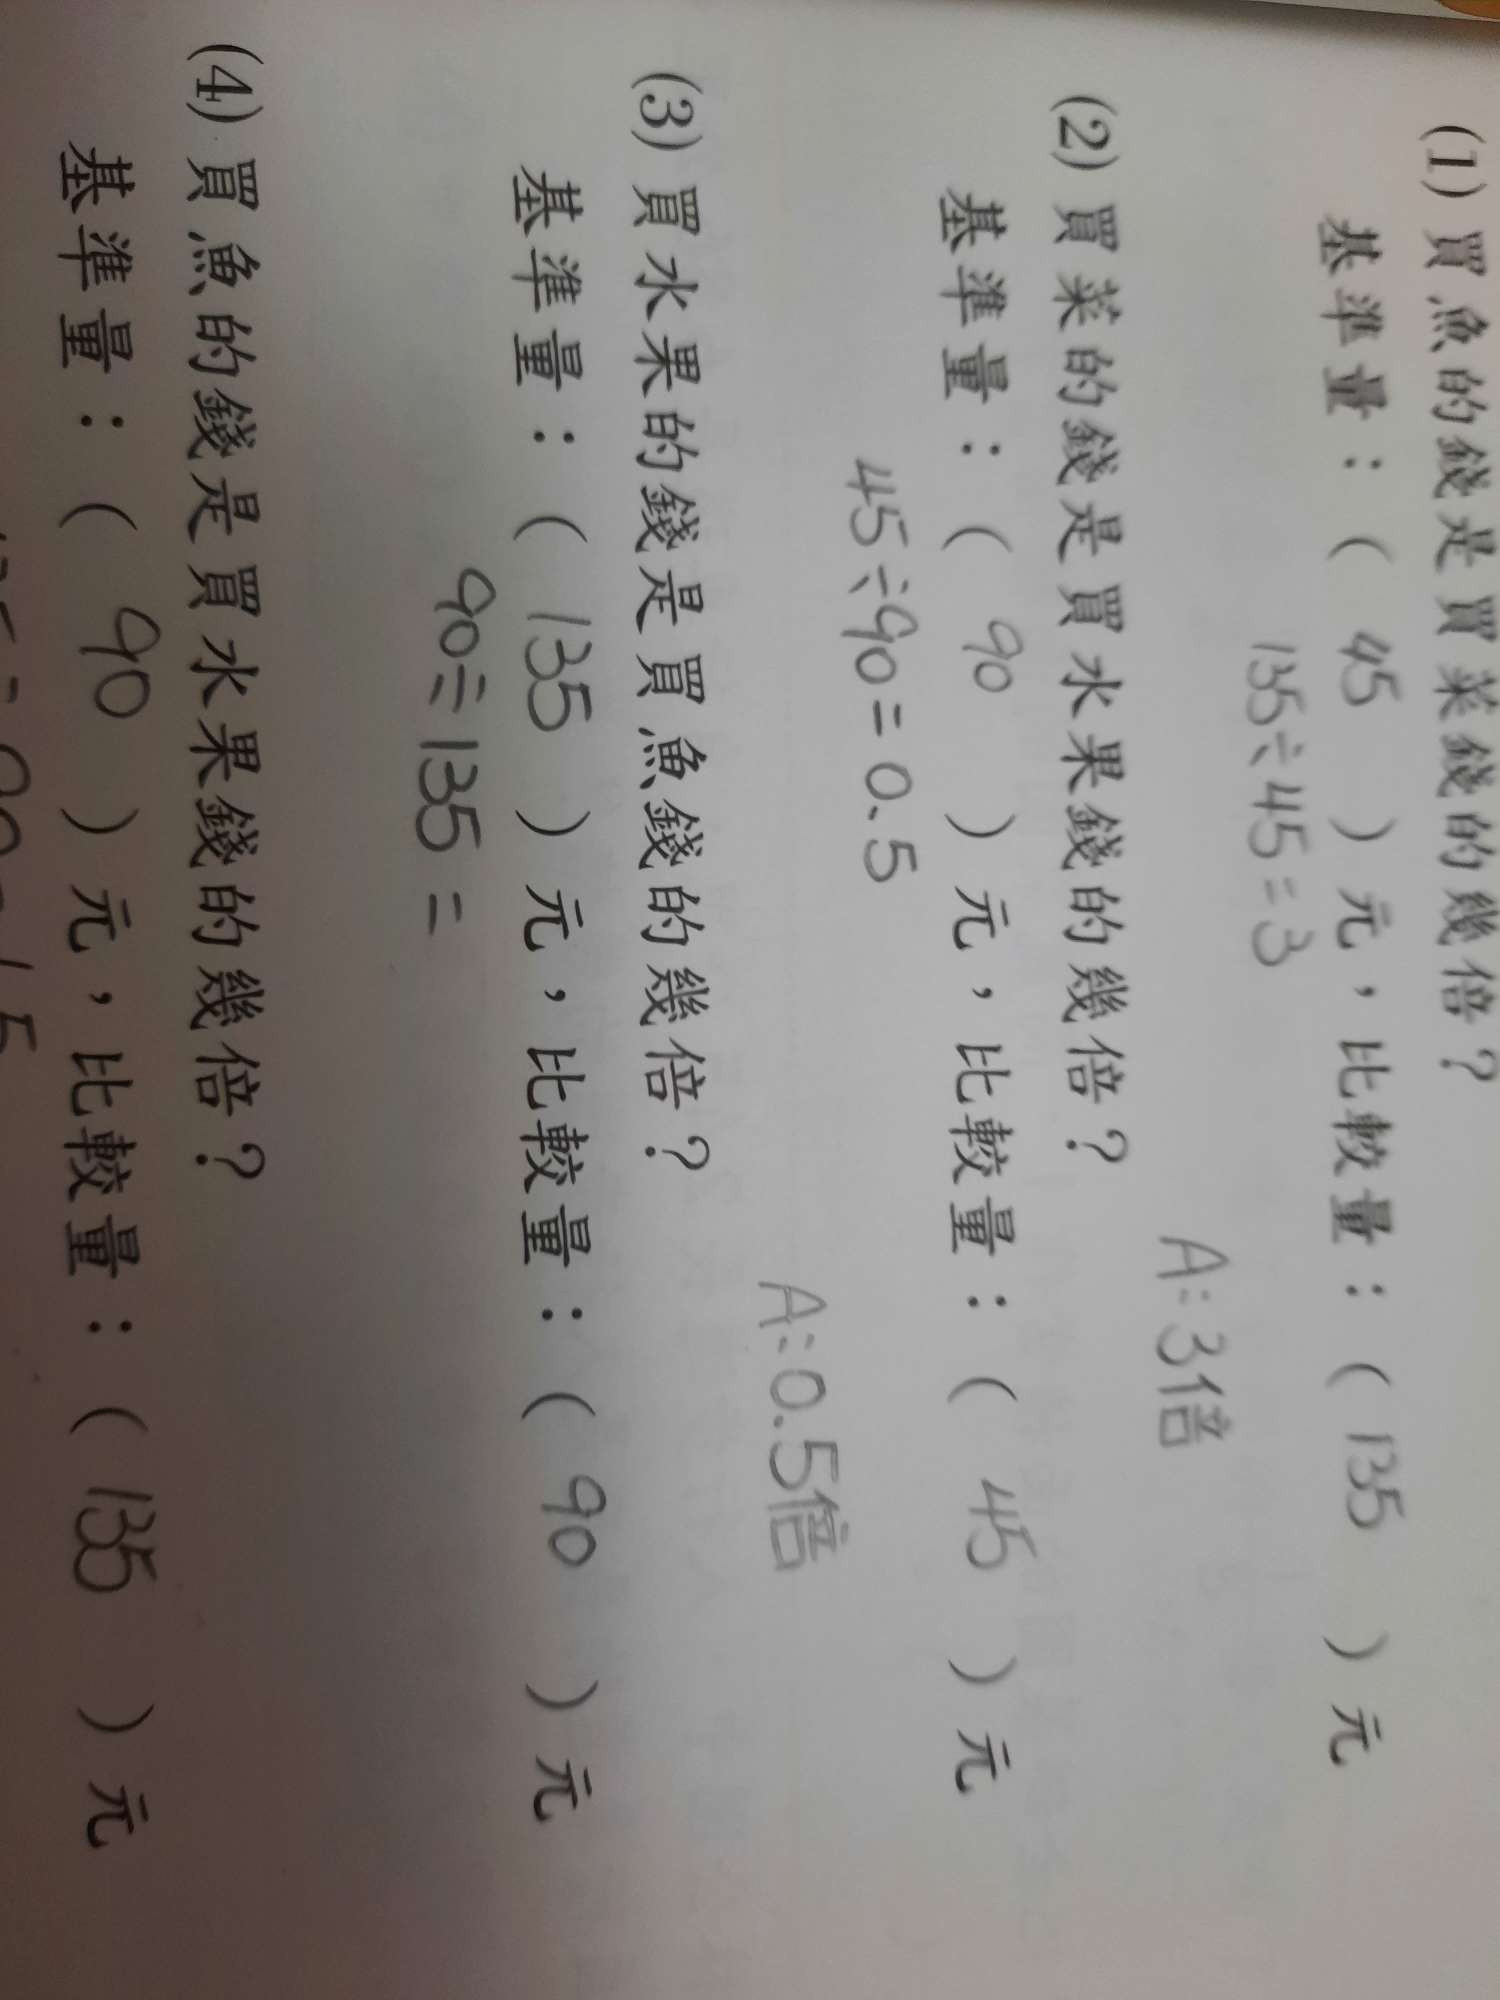 (1) 買魚的錢是買菜錢的幾倍？
基準量：( 45 ) 元，比較量：( 135 ) 元
135÷45=3
A:3倍
(2) 買菜的錢是買水果錢的幾倍？
基準量：( 90 ) 元，比較量：( 45 ) 元
45÷90=0.5
A:0.5倍
(3) 買水果的錢是買魚錢的幾倍？
基準量：( 135 ) 元，比較量：( 90 ) 元
90÷135=
(4) 買魚的錢是買水果錢的幾倍？
基準量：( 90 ) 元，比較量：( 135 ) 元